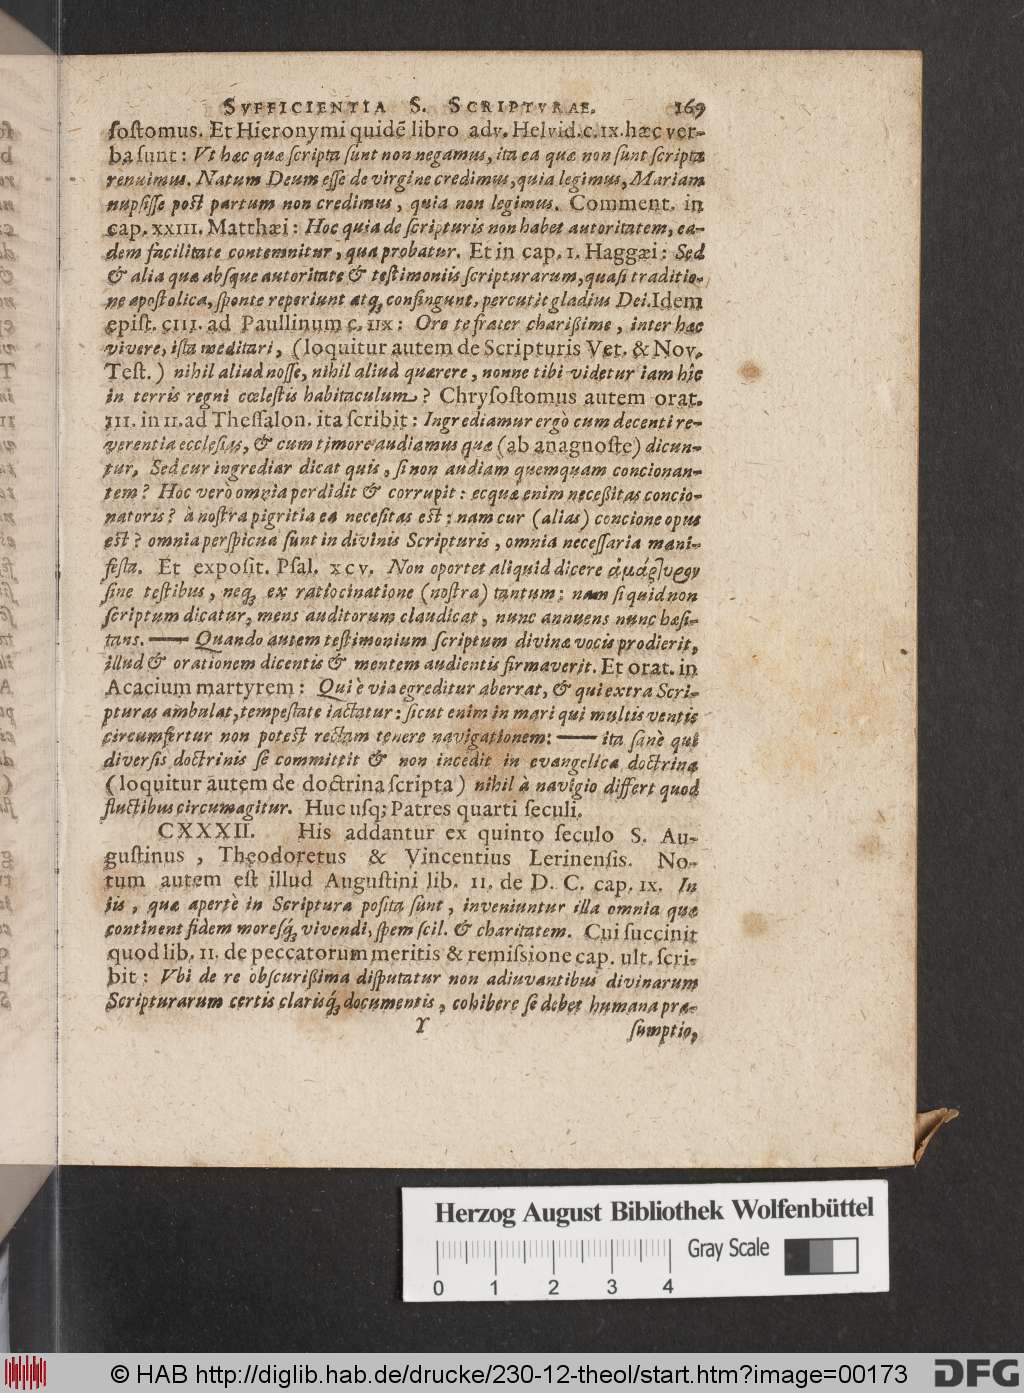 SVFFICIENTIA S. SCRIPTVRAE. 169
ſoſtomus. Et Hieronymi quidē libro adv. Helvid. c. IX. hæc ver-
ba ſunt: Vt hæc quæ ſcripta ſunt non negamus, ita ea quæ non ſunt ſcripta
renuimus. Natum Deum eſſe de virgine credimus, quia legimus, Mariam
nupſiſſe poſt partum non credimus, quia non legimus. Comment. in
cap. XXIII. Matthæi: Hoc quia de ſcripturis non habet autoritatem, ea-
dem facilitate contemnitur, qua probatur. Et in cap. I. Haggæi: Sed
& alia quæ absque autoritate & teſtimoniis ſcripturarum, quaſi traditio-
ne apoſtolica, ſponte reperiunt atq; confingunt, percutit gladius Dei. Idem
epiſt. CIII. ad Paullinum c. IIX: Oro te frater chariſsime, inter hæc
vivere, iſta meditari, (loquitur autem de Scripturis Vet. & Nov.
Teſt.) nihil aliud noſſe, nihil aliud quærere, nonne tibi videtur iam hîc
in terris regni cœleſtis habitaculum? Chryſoſtomus autem orat.
III. in II. ad Theſſalon. ita ſcribit: Ingrediamur ergò cum decenti re-
verentia eccleſias, & cum timore audiamus quæ (ab anagnoſte) dicun-
tur. Sed cur ingrediar dicat quis, ſi non audiam quemquam concionan-
tem? Hoc verò omnia perdidit & corrupit: ecquæ enim neceſsitas concio-
natoris? à noſtra pigritia ea neceſitas eſt: nam cur (alias) concione opus
eſt? omnia perſpicua ſunt in divinis Scripturis, omnia neceſſaria mani-
feſta. Et expoſit. Pſal. XCV. Non oportet aliquid dicere ἀμάρτυρον
ſine teſtibus, neq; ex ratiocinatione (noſtra) tantum: nam ſi quid non
ſcriptum dicatur, mens auditorum claudicat, nunc annuens nunc hæſi-
tans. —— Quando autem teſtimonium ſcriptum divinæ vocis prodierit,
illud & orationem dicentis & mentem audientis firmaverit. Et orat. in
Acacium martyrem: Qui è via egreditur aberrat, & qui extra Scri-
pturas ambulat, tempeſtate iactatur: ſicut enim in mari qui multis ventis
circumfertur non poteſt rectam tenere navigationem: —— ita ſanè qui
diverſis doctrinis ſe committit & non incedit in evangelica doctrina
(loquitur autem de doctrina ſcripta) nihil à navigio differt quod
fluctibus circumagitur. Huc uſq; Patres quarti ſeculi.
CXXXII. His addantur ex quinto ſeculo S. Au-
guſtinus, Theodoretus & Vincentius Lerinenſis. No-
tum autem eſt illud Auguſtini lib. II. de D. C. cap. IX. In
iis, quæ apertè in Scriptura poſita ſunt, inveniuntur illa omnia quæ
continent fidem moresq́; vivendi, ſpem ſcil. & charitatem. Cui ſuccinit
quod lib. II. de peccatorum meritis & remiſsione cap. ult. ſcri-
bit: Vbi de re obſcuriſsima diſputatur non adiuvantibus divinarum
Scripturarum certis clarisq́; documentis, cohibere ſe debet humana præ-
Y ſumptio,
Herzog August Bibliothek Wolfenbüttel
Gray Scale
0 1 2 3 4
© HAB http://diglib.hab.de/drucke/230-12-theol/start.htm?image=00173
DFG